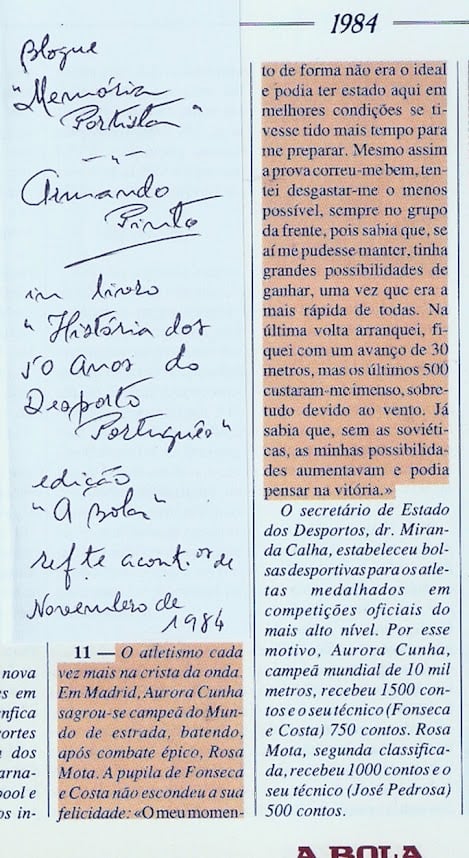 Blogue
"Memória
Portista"
-..-
Armando
Pinto
in livro
"História dos
50 Anos do
Desporto
Português"
edição
"A Bola"
refte acont.os de
Novembro de
1984
nova
es em
nfica
ortes
a dos
arna-
pool e
os in-
11 — O atletismo cada
vez mais na crista da onda.
Em Madrid, Aurora Cunha
sagrou-se campeã do Mun-
do de estrada, batendo,
após combate épico, Rosa
Mota. A pupila de Fonseca
e Costa não escondeu a sua
felicidade: «O meu momen-
1984
to de forma não era o ideal
e podia ter estado aqui em
melhores condições se ti-
vesse tido mais tempo para
me preparar. Mesmo assim
a prova correu-me bem, ten-
tei desgastar-me o menos
possível, sempre no grupo
da frente, pois sabia que, se
aí me pudesse manter, tinha
grandes possibilidades de
ganhar, uma vez que era a
mais rápida de todas. Na
última volta arranquei, fi-
quei com um avanço de 30
metros, mas os últimos 500
custaram-me imenso, sobre-
tudo devido ao vento. Já
sabia que, sem as soviéti-
cas, as minhas possibilida-
des aumentavam e podia
pensar na vitória.»
O secretário de Estado
dos Desportos, dr. Miran-
da Calha, estabeleceu bol-
sas desportivas para os atle-
tas medalhados em
competições oficiais do
mais alto nível. Por esse
motivo, Aurora Cunha,
campeã mundial de 10 mil
metros, recebeu 1500 con-
tos e o seu técnico (Fonseca
e Costa) 750 contos. Rosa
Mota, segunda classifica-
da, recebeu 1000 contos e o
seu técnico (José Pedrosa)
500 contos.
A BOLA